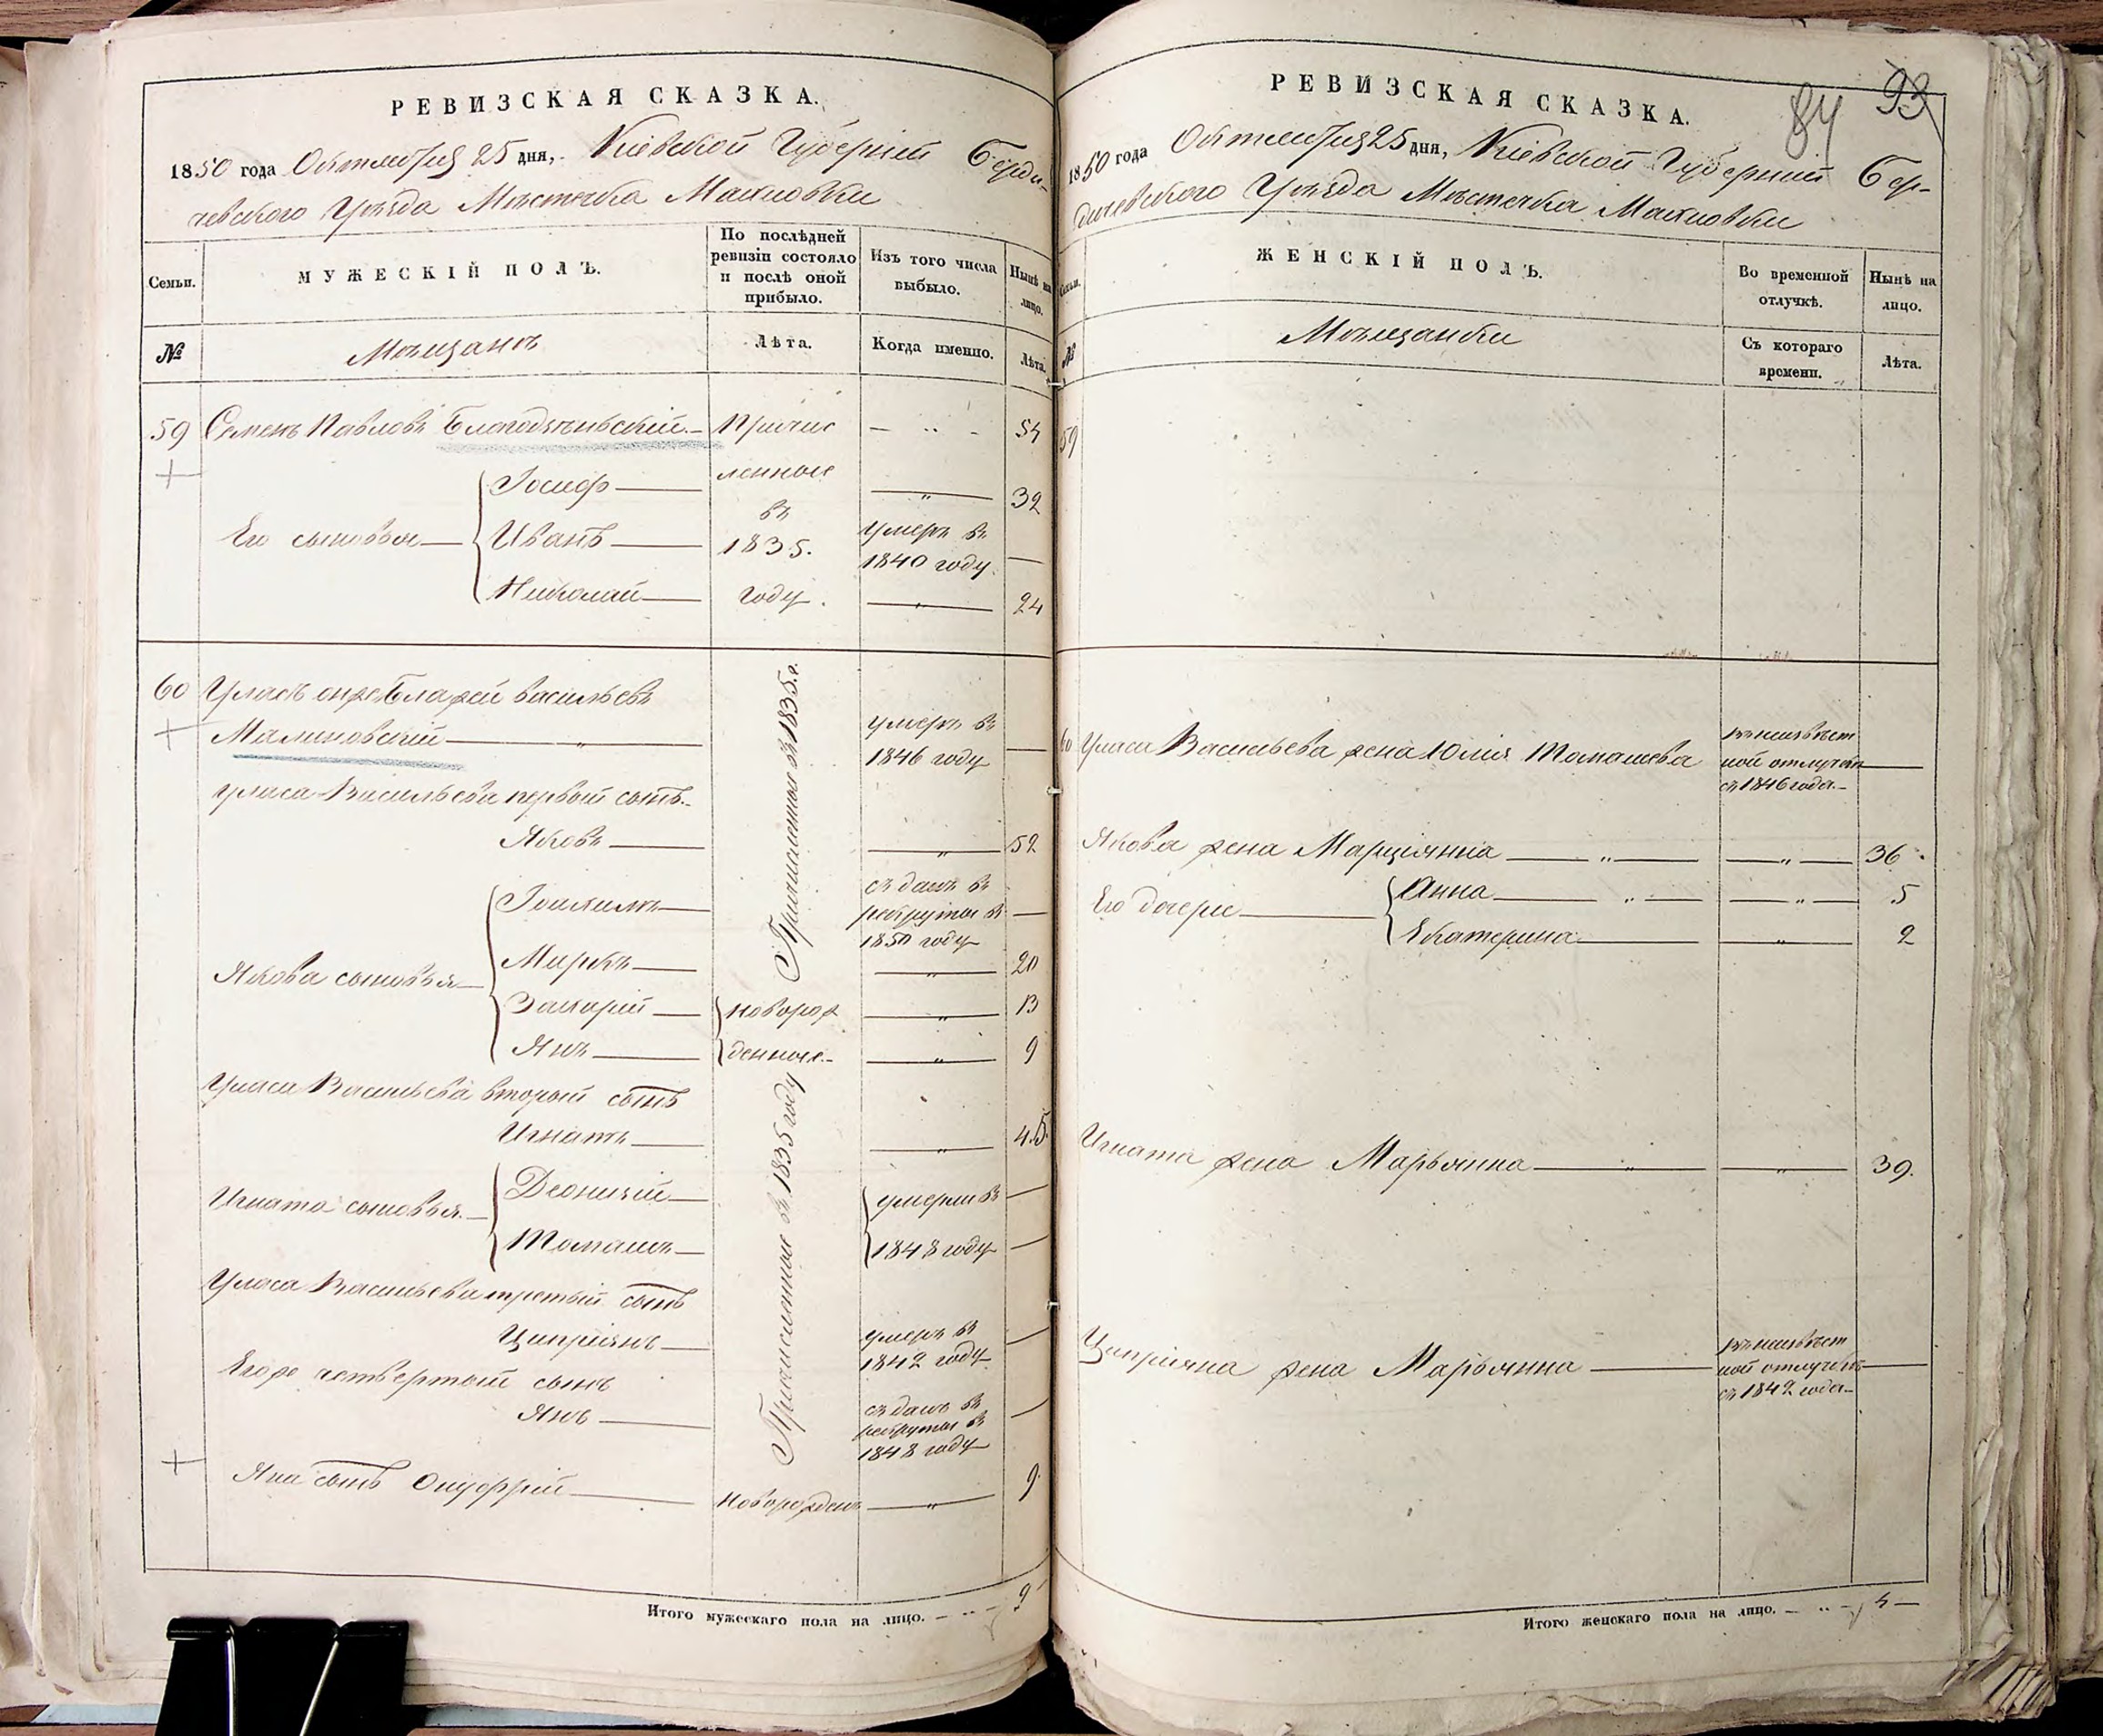 РЕВИЗСКАЯ СКАЗКА.
1850 года Октября 25 дня, Кіевской Губерніи Берди-
чевского Уѣзда Мѣстечка Махновки
Семьи.
МУЖЕСКІЙ ПОЛЪ.
По послѣдней ревизіи состояло и послѣ оной прибыло.
Изъ того числа выбыло.
Нынѣ на лицо.
№
Мѣщанъ
Лѣта.
Когда именно.
Лѣта.
59 Семенъ Павловъ Благодѣньскій Причис 54
Іосифъ ленные 32
Его сыновья Иванъ въ 1835. умеръ въ 1840 году
Николай году. 24
60 Уласъ онже Блажей Васильевъ
Малиновскій умеръ въ 1846 году
Причисленные въ 1835. г.
Уласа Васильева первый сынъ
Яковъ 52
Іоахимъ сданъ въ рекруты въ 1850 году
Якова сыновья Маркъ 20
Захарій новорож 13
Янъ денные 9
Уласа Васильева вторый сынъ
Причисленные въ 1835 году
Игнатъ 45.
Игната сыновья Деонизій умерли въ
Томашъ 1848 году
Уласа Васильева третый сынъ
Ципріянъ умеръ въ 1842 году
Егоже четвертый сынъ
Янъ сданъ въ рекруты въ 1848 году
Яна сынъ Онуфрій новорожден 9
Итого мужескаго пола на лицо. 9
84 93
РЕВИЗСКАЯ СКАЗКА.
1850 года Октября 25 дня, Кіевской Губерніи Бер-
дичевского Уѣзда Мѣстечка Махновки
Семьи.
ЖЕНСКІЙ ПОЛЪ.
Во временной отлучкѣ.
Нынѣ на лицо.
№
Мѣщанки
Съ котораго времени.
Лѣта.
59
60 Уласа Васильева жена Юлія Томашева въ неизвѣст
ной отлучкѣ
съ 1846 года.
Якова жена Марціянна 36
Его дочери Анна 5
Екатерина 2
Игната жена Марьянна 39.
Ципріяна жена Марьянна въ неизвѣст
ной отлучкѣ
съ 1842 года
Итого женскаго пола на лицо. 4